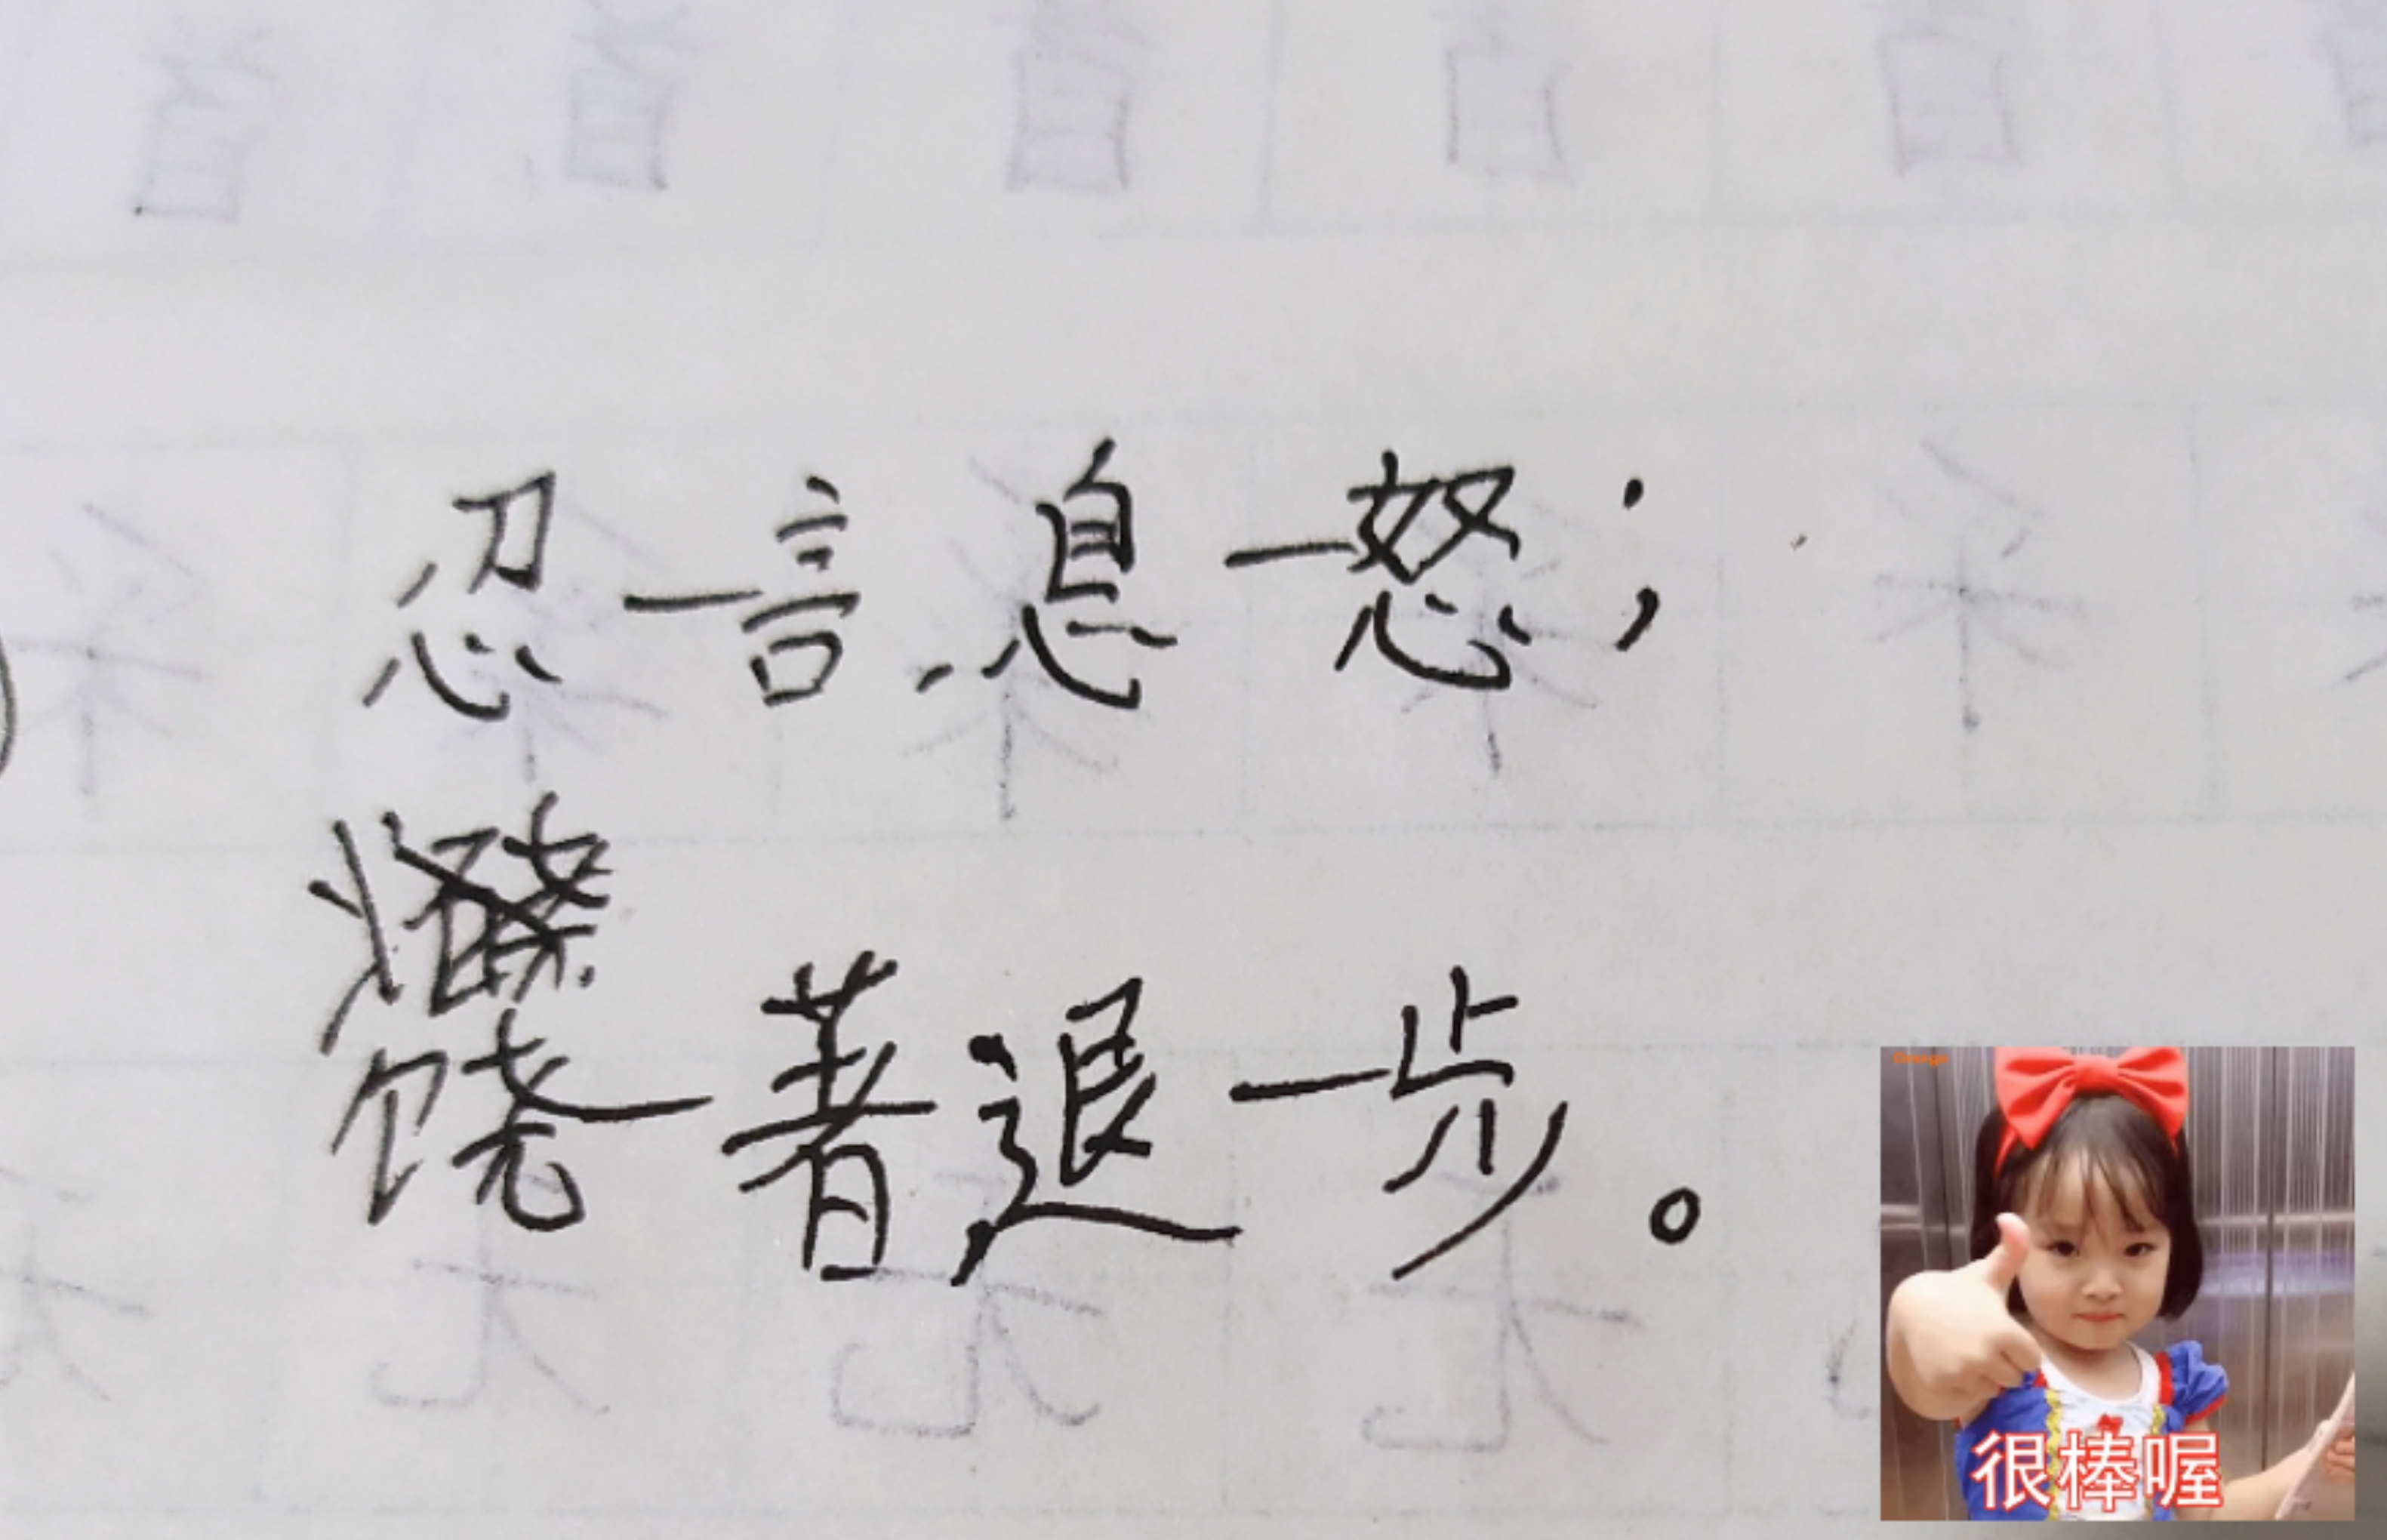 忍一言，息一怒；
饶一著，退一步。
很棒喔